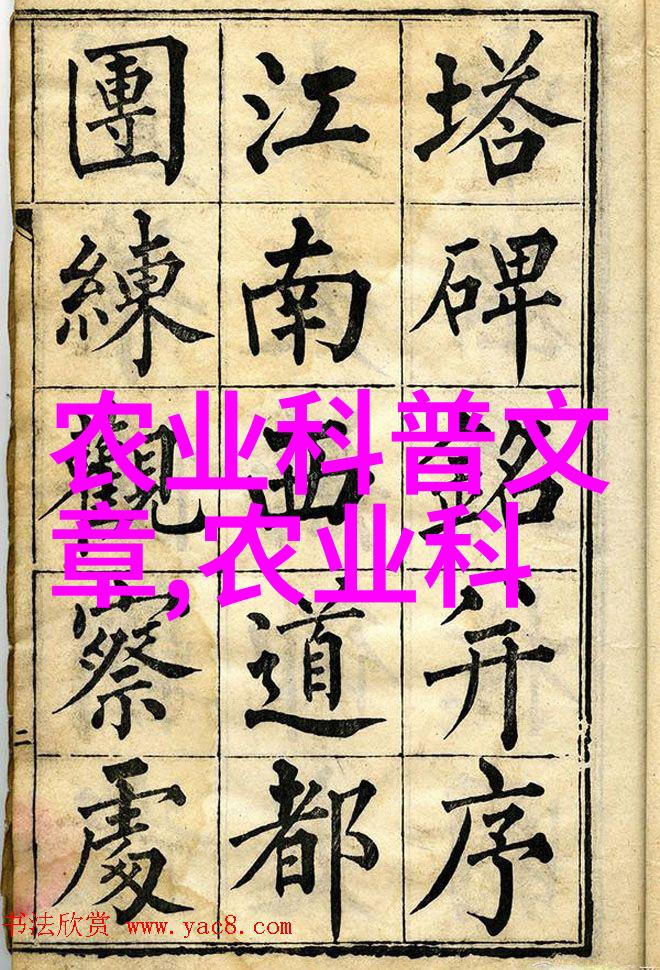 塔碑銘并序
江南西道都
團練觀察處
二
农业科普文
章,农业科
书法欣赏 www.yac8.com